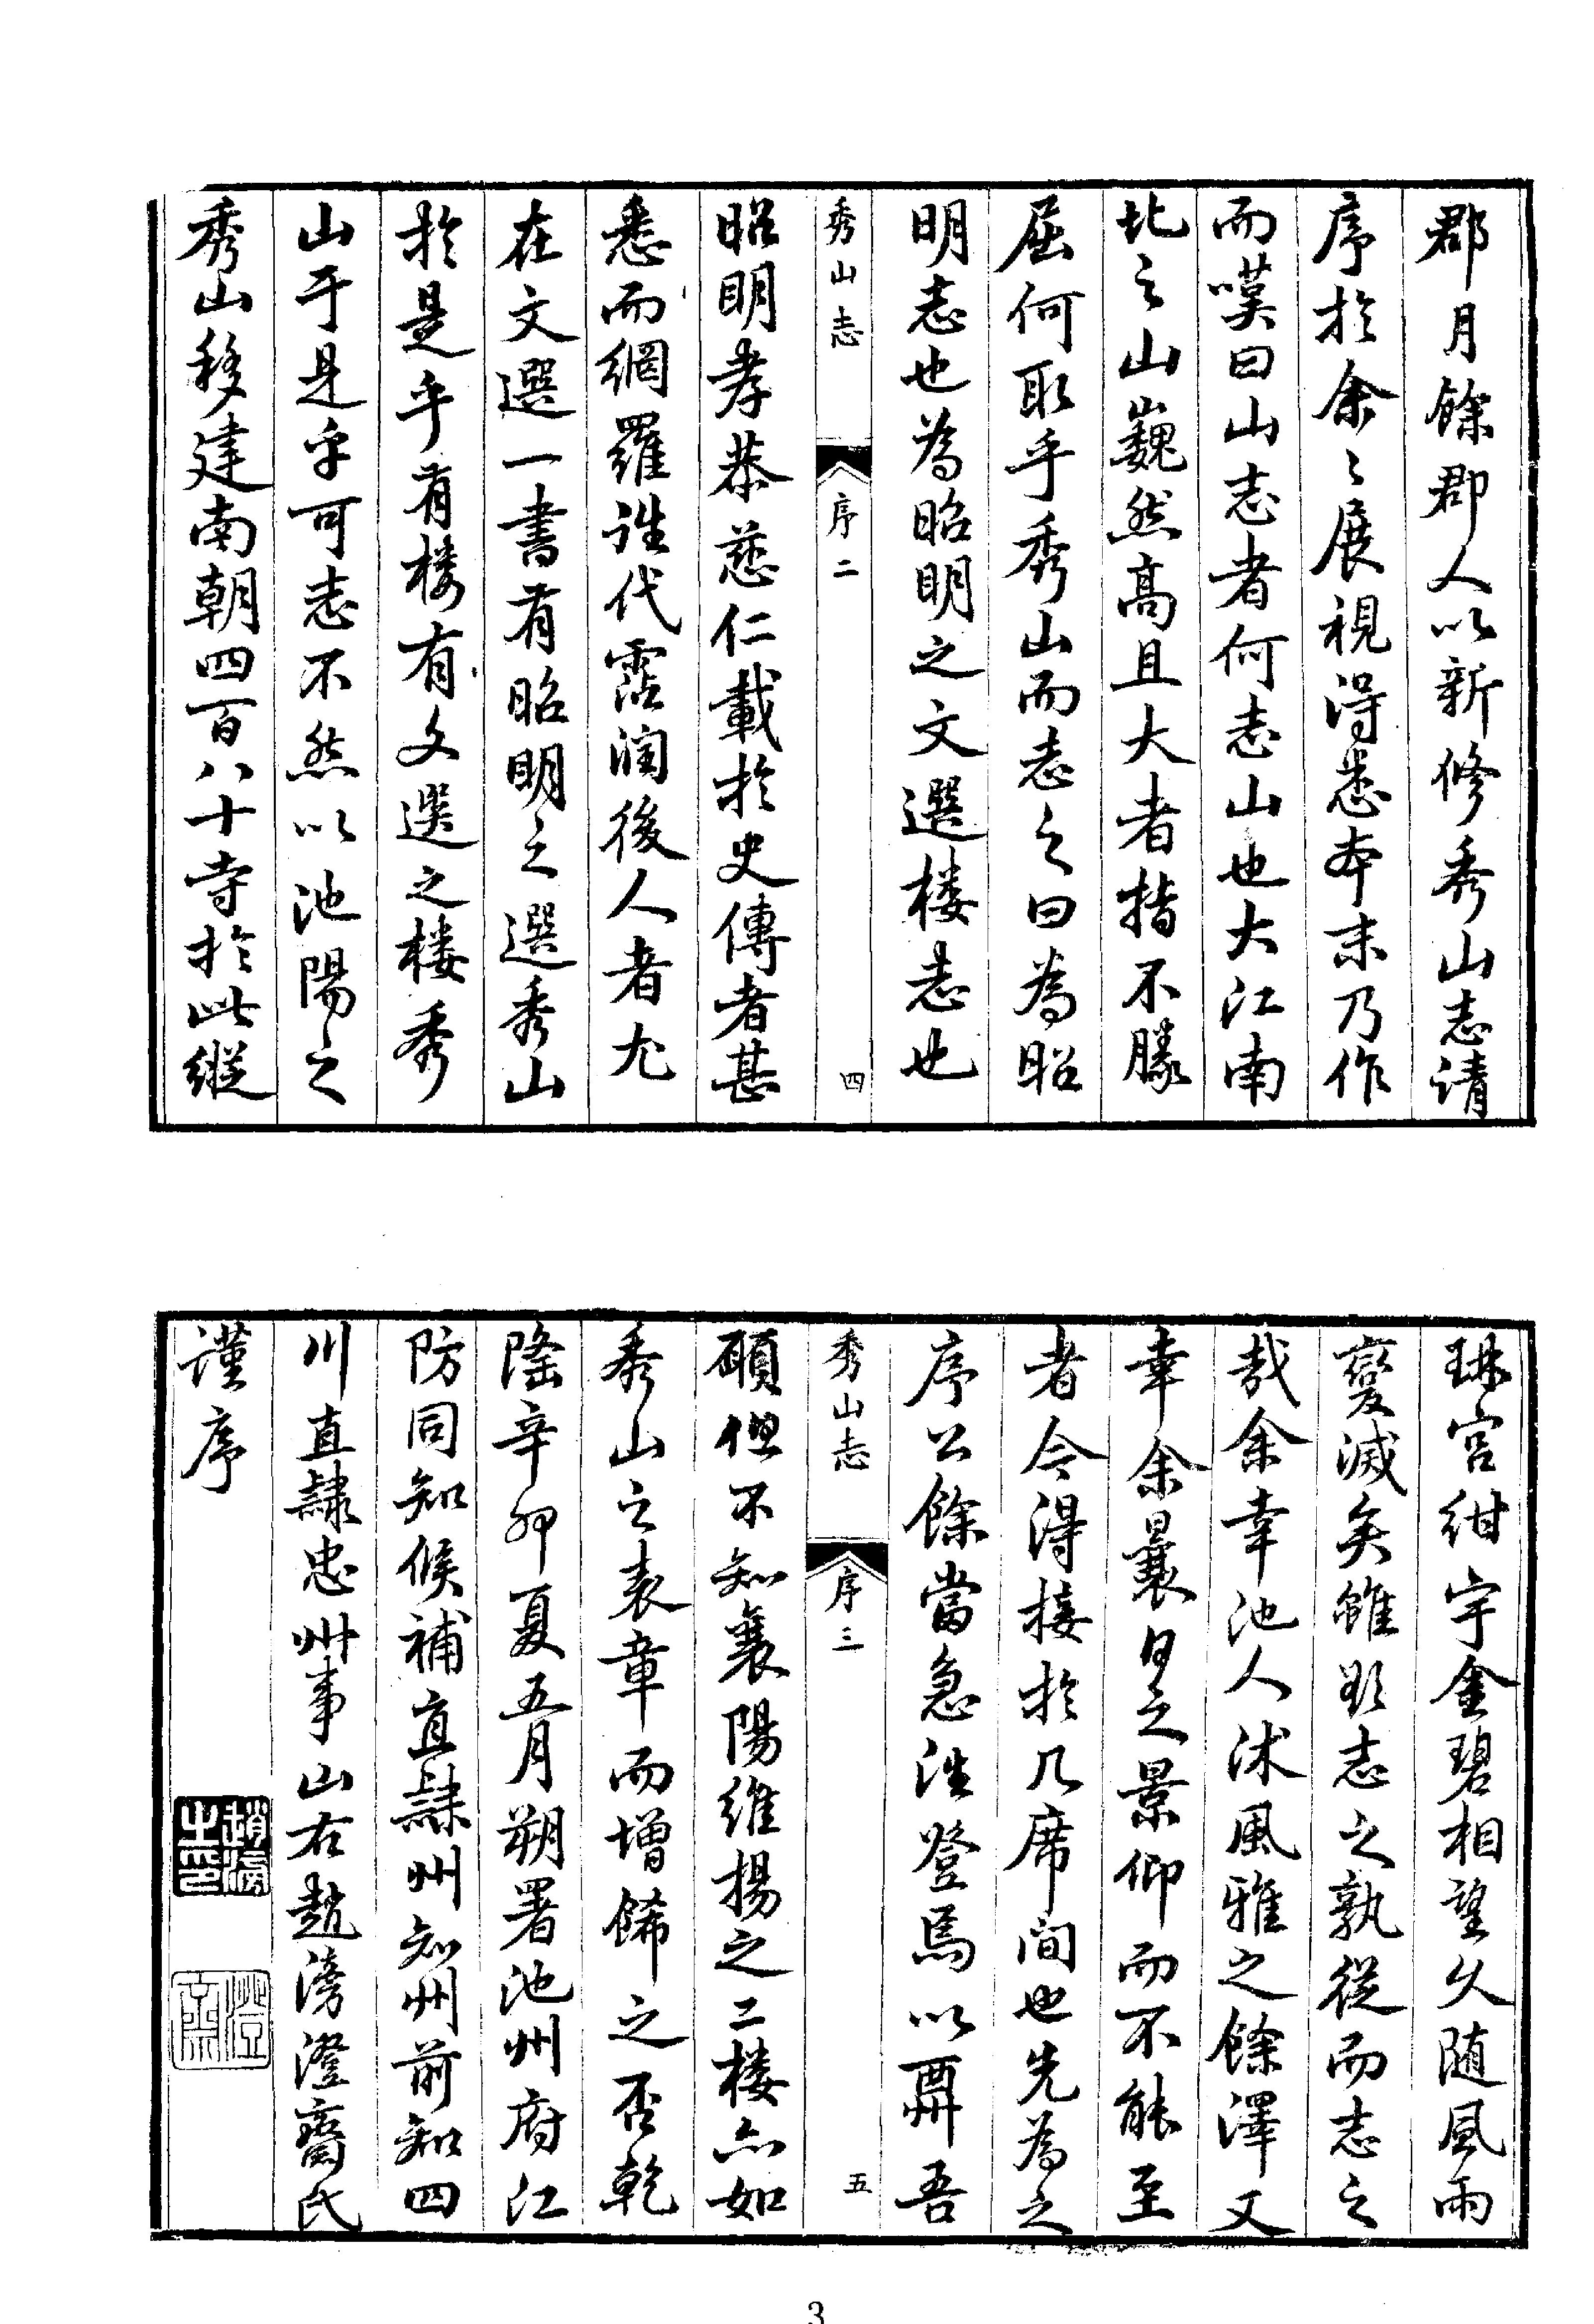 郡月餘郡人以新修秀山志請
序於余〻展視得悉本末乃作
而嘆曰山志者何志山也大江南
北之山巍然高且大者指不勝
屈何取乎秀山而志之曰為昭
明志也為昭明之文選楼志也
秀山志
序二
四
昭明孝恭慈仁載於史傳者甚
悉而網羅往代霑潤後人者尤
在文選一書有昭明之選秀山
於是乎有楼有文選之楼秀
山于是乎可志不然以池陽之
秀山移建南朝四百八十寺於此縱
琳宮紺宇金碧相望久随風雨
變滅矣雖欲志之孰從而志之
哉余幸池人沐風雅之餘澤又
幸余曩日之景仰而不能至
者今得接於几席间也先為之
序公餘當急往登焉以酬吾
秀山志
序三
五
願但不知襄陽維揚之二楼亦如
秀山之表章而增餙之否乾
隆辛卯夏五月朔署池州府江
防同知候補直隸州知州前知四
川直隸忠州事山右趙滂澄齋氏
謹序
趙滂之印
澄齋
3